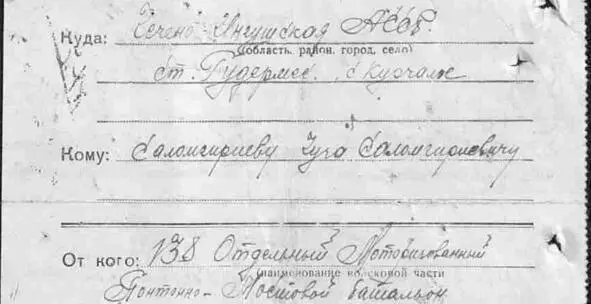 Куда: Чечено Ингушская АССР.
(область, район, город, село)
ст. Гудермес. с Курчалой
Кому: Саламгириеву Саламгириевичу
От кого: 138 Отдельный Моторизованный
(наименование войсковой части
Понтонно-Мостовой батальон